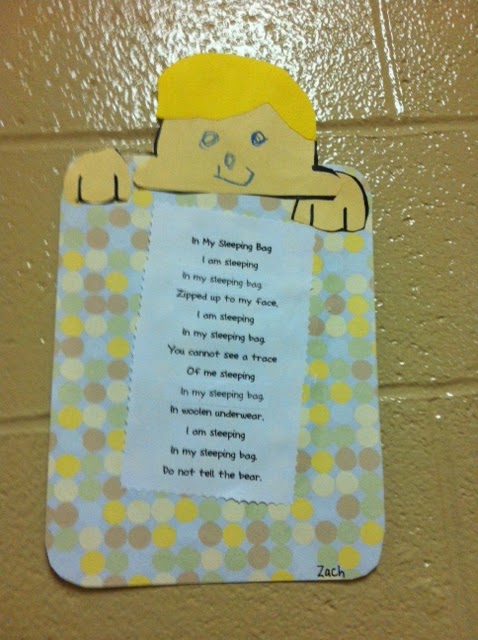 In My Sleeping Bag
I am sleeping
In my sleeping bag.
Zipped up to my face,
I am sleeping
In my sleeping bag.
You cannot see a trace
Of me sleeping
In my sleeping bag.
In woolen underwear,
I am sleeping
In my sleeping bag.
Do not tell the bear.
Zach